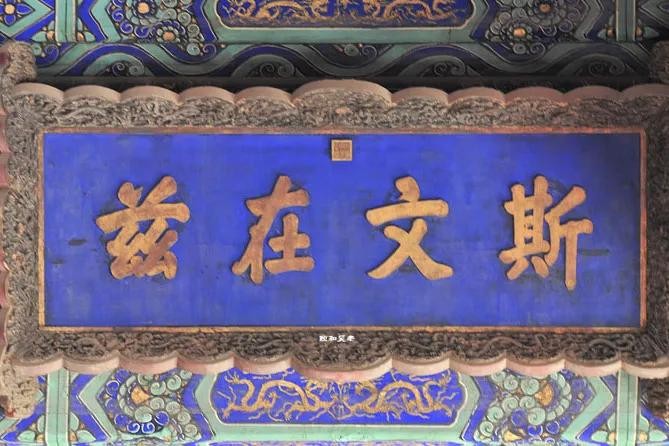 斯文在兹